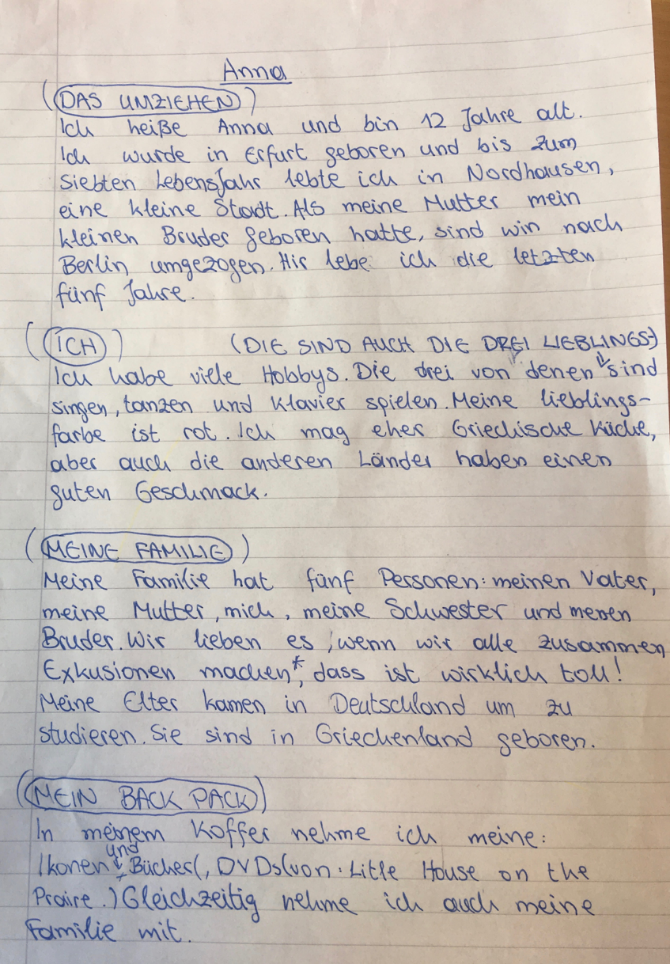 Anna
(DAS UMZIEHEN)
Ich heiße Anna und bin 12 Jahre alt.
Ich wurde in Erfurt geboren und bis zum
siebten Lebensjahr lebte ich in Nordhausen,
eine kleine Stadt. Als meine Mutter mein
kleinen Bruder geboren hatte, sind wir nach
Berlin umgezogen. Hir lebe ich die letzten
fünf Jahre.
(ICH) (DIE SIND AUCH DIE DREI LIEBLINGS)
Ich habe viele Hobbys. Die drei von denen sind
singen, tanzen und Klavier spielen. Meine lieblings-
farbe ist rot. Ich mag eher Griechische Küche,
aber auch die anderen Länder haben einen
guten Geschmack.
(MEINE FAMILIE)
Meine Familie hat fünf Personen: meinen Vater,
meine Mutter, mich, meine Schwester und meinen
Bruder. Wir lieben es, wenn wir alle zusammen
Exkusionen machen*, dass ist wirklich toll!
Meine Elter kamen in Deutschland um zu
studieren. Sie sind in Griechenland geboren.
(MEIN BACK PACK)
In meinem Koffer nehme ich meine:
Ikonen und Bücher(, DVDs(von: Little House on the
Prairie.) Gleichzeitig nehme ich auch meine
Familie mit.